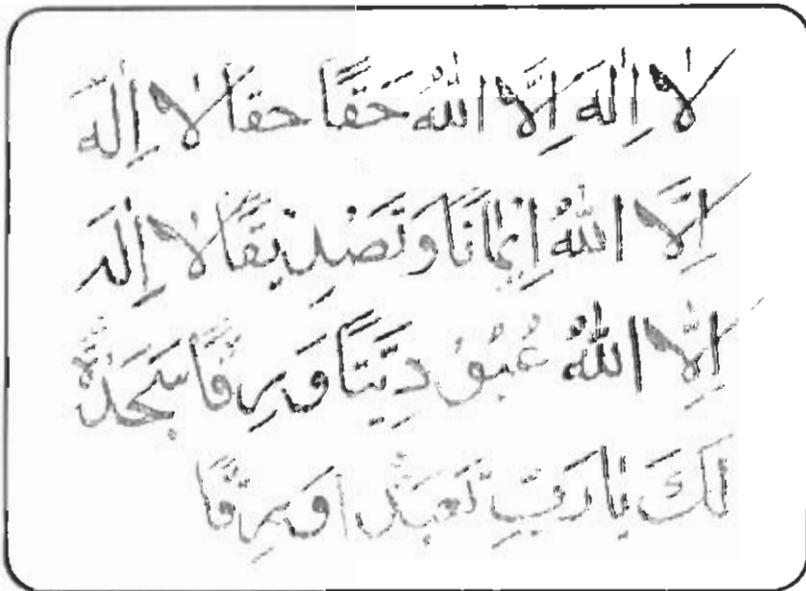 لَا اِلٰهَ اِلَّا اللّٰهُ حَقًّا حقا لَا اِلٰهَ
اِلَّا اللّٰهُ اِيْمَانًا وَتَصْدِيْقًا لَا اِلٰهَ
اِلَّا اللّٰهُ عُبُوْدِيَّتًا وَرِقًّا سَجَدْتُّ
لَكَ يَا رَبِّ تَعَبُّدًا وَرِقًّا